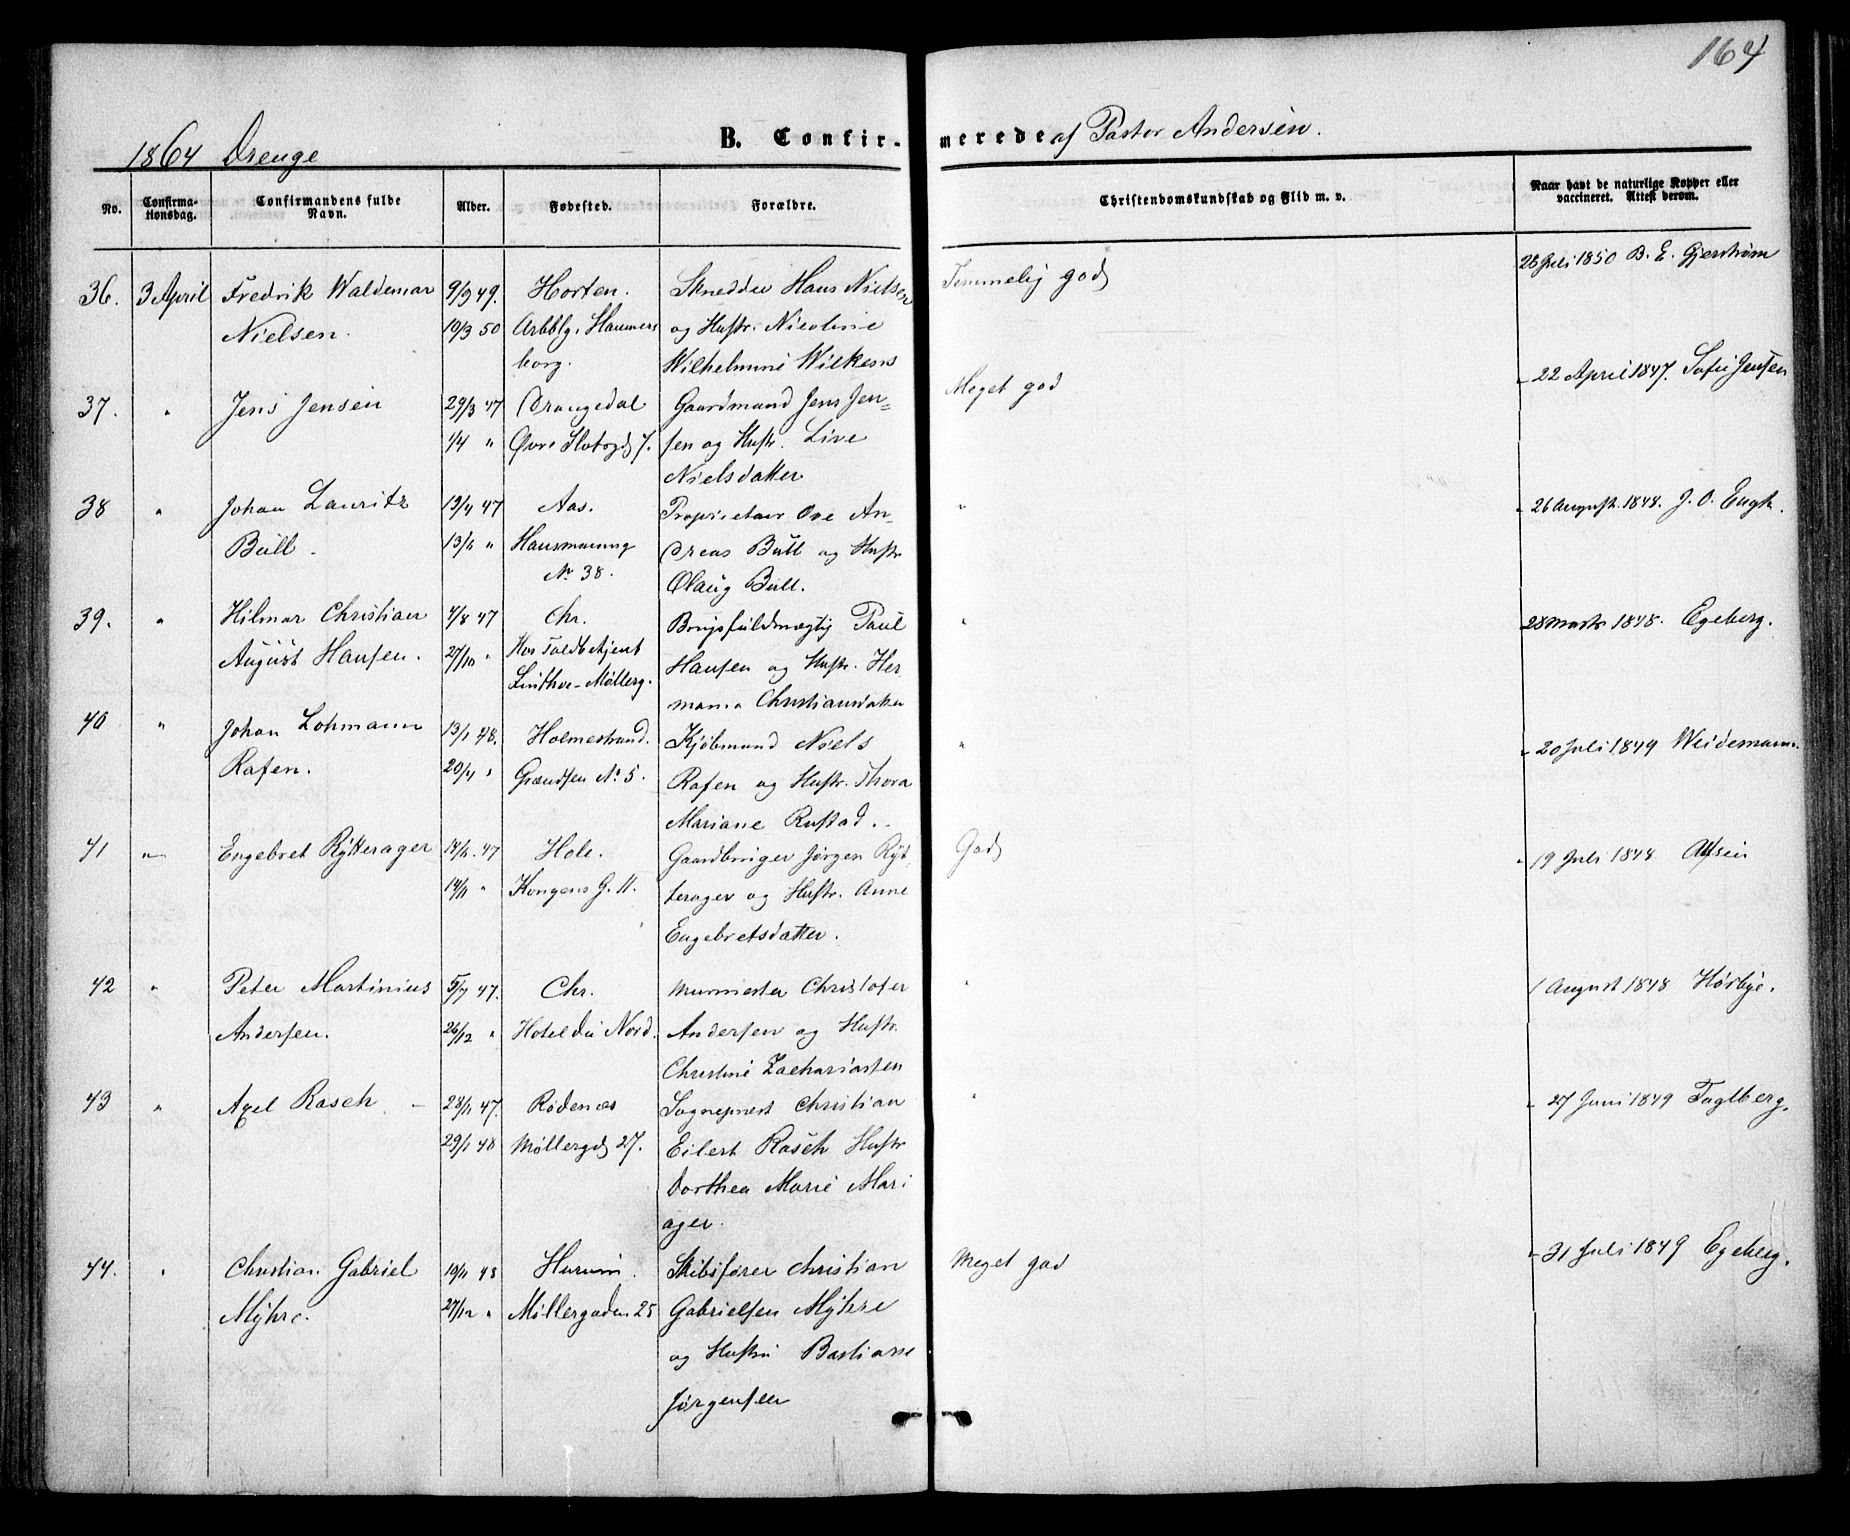 164
1864 Drenge
B. Confir- merede af Pastor Andersen.
No.
Confirma-
tionsdag.
Confirmandens fulde
Navn.
Alder.
Fødested.
Forældre.
Christendomskundskab og Flid m. v.
Naar havt de naturlige Kopper eller
vaccineret. Attest derom.
36. 3 April Fredrik Waldemar 9/9 49. Horten. Skredder Hans Nielsen Temmelig god 28 Juli 1850 B. E. Gjerstrøm
Nielsen. 10/3 50 Arbblg. Hammers og Hustr. Nicoline
borg. Wilhelmine Wilkens
37. " Jens Jensen 29/3 47 Drangedal Gaardmand Jens Jen= Meget god " 22 April 1847. Sofie Jensen
1/4 " Øvre Slotsgd 7. sen og Hustr. Live
Nielsdatter
38 " Johan Lauritz 13/4 47 Aas. Proprietær Ove An- " " 26 August 1848. J. O. Engh.
Bull. 13/6 " Hausmannsg dreas Bull og Hustr
No 38. Olaug Bull.
39. " Hilmar Christian 4/8 47 Chr. Brugsfuldmægtig Paul " 28 Marts 1848. Egeberg.
August Hansen. 27/10 " Hos Toldbetjent Hansen og Hustr. Her
Lindhoe - Møllerg. mana Christiansdatter
40 " Johan Lohmann 13/1 48. Holmestrand. Kjøbmand Niels " " 20 Juli 1849 Weidemann.
Rafen. 20/4 " Grændsen No 5. Rafen og Hustr. Thora
Mariane Rustad.
41 " Engebret Rytterager 14/6. 47 Hole. Gaardbruger Jørgen Ryt- God " 19 Juli 1848
14/11 " Kongens G. 11. terager og Hustr. Anne
Engebretsdatter.
42 " Peter Martinius 5/7 47. Chr. Murmester Christofer " 1 August 1848 Hørbye.
Andersen. 26/12 " Hotel du Nord. Andersen og Hustr.
Christine Zachariasten
43 " Axel Rasch 28/11 47. Rødenæs Sognepræst Christian " " 27 Juni 1849 Faglberg.
29/1 48 Møllergd 27. Eilert Rasch Hustr
Dorthea Marie Mari
ager.
44. " Christian Gabriel 10/11 48 Hurum. Skibsfører Christian Meget god " 31 Juli 1849 Egeberg.
Myhre. 27/12 " Møllergaden 25 Gabrielsen Myhre
og Hustru Bastiane
Jørgensen